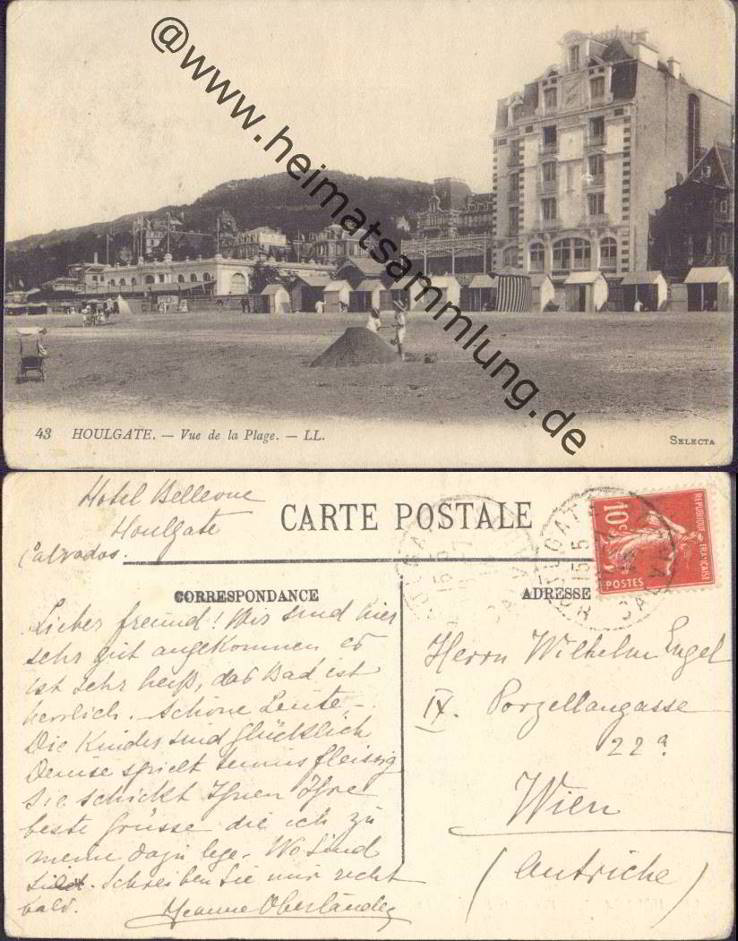 @www.heimatsammlung.de
43 HOULGATE. — Vue de la Plage. — LL.
SELECTA
Hotel Bellevue
Houlgate
Calvados.
CARTE POSTALE
CORRESPONDANCE
ADRESSE
10c
REPUBLIQUE FRANÇAISE
POSTES
Lieber freund! Wir sind hier
sehr gut angekommen, es
ist sehr heiß, das Bad ist
herrlich. Schöne Leute –
Die Kinder sind glücklich
Denise spielt tennis fleissig
Sie schickt Ihnen Ihre
beste Grüsse die ich zu
meine dazu lege. Wo sind
Schreiben Sie mir recht
bald.
Jeanne Oberländer
Herrn Wilhelm Engel
IX. Porzellangasse
22a
Wien
(Autriche)